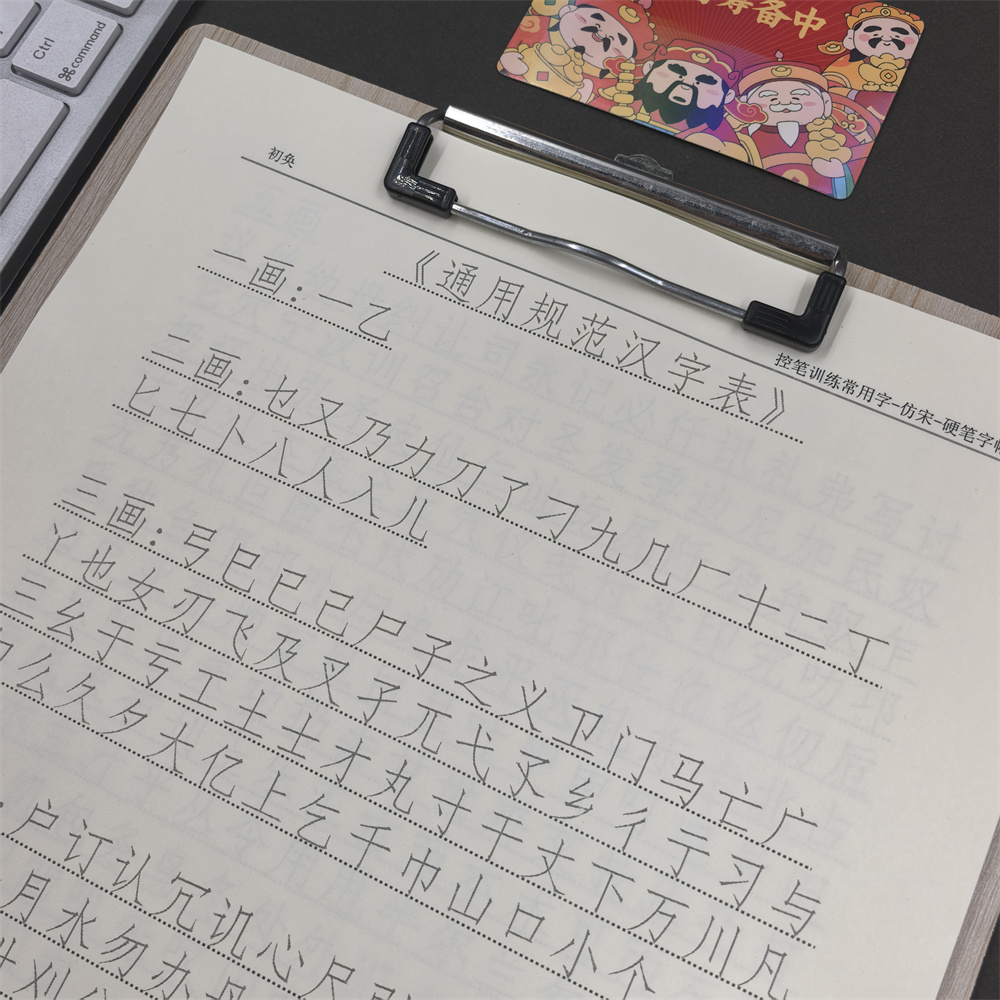 Ctrl
⌘command
筹备中
初奂
控笔训练常用字-仿宋-硬笔字帖
《通用规范汉字表》
一画：一乙
二画：乜又乃力刀了刁九几厂十二丁
匕七卜八人入儿
三画：弓巳已己尸子之义卫门马亡广
丫也女刃飞及叉孑兀弋
乡彳亍习与
三幺于亏工土士才丸寸干丈下万川凡
么久夕大亿上乞千巾山口小个
户订认冗讥心尺
月水勿办丹
刈